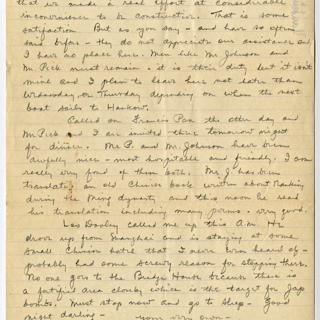 that we made a real effort at considerable
inconvenience to be constructive. That is some
satisfaction. But as you say - and have so often
said before - they do not appreciate our assistance and
I have no place here. Men like Mr. Johnson and
Mr Peck must remain - it is their duty but it isn't
mine and I plan to leave here not later than
Wednesday or Thursday depending on when the next
boat sails to Hankow.
Called on Francis Pan the other day and
Mr Peck and I are invited there tomorrow night
for dinner. Mr. P. and Mr. Johnson have been
awfully nice - most hospitable and friendly. I am
really very fond of them both. Mr. J. has been
translating an old Chinese book written about Nanking
during the Ming dynasty and this noon he read
his translation including many poems - very good.
Les Dooley called me up this a.m. He
drove up from Shanghai and is staying at some
small Chinese hotel that I never even heard of -
probably had some screwy reason for stopping there.
No one goes to the Bridge House because there is
a fortified area closeby which is the target for Jap
bombs. Must stop now and go to sleep - Good
night darling -
your very own -